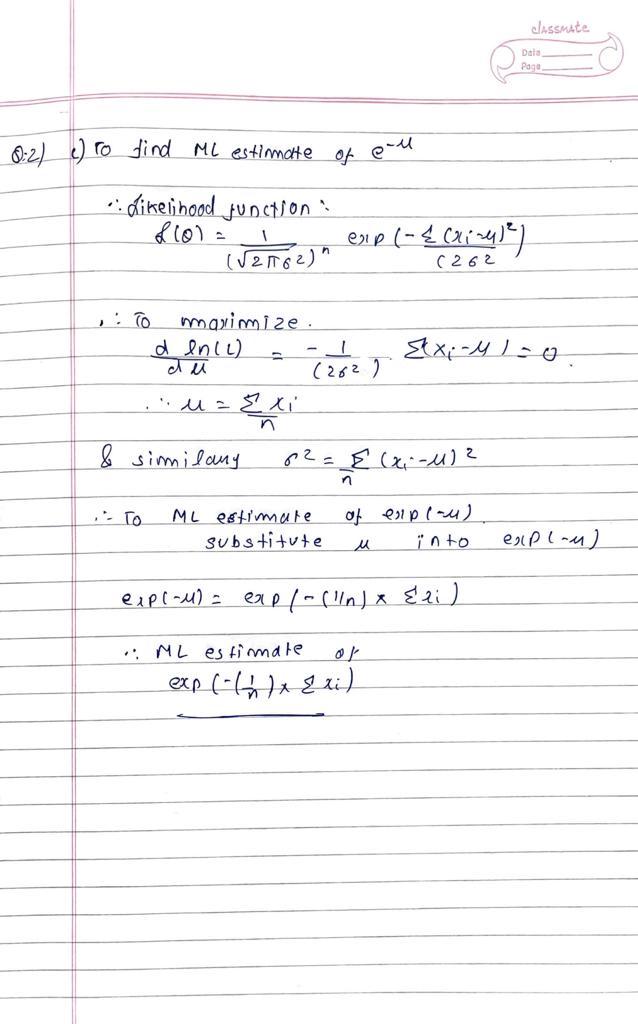 classmate
Date
Page
Q.2) c) To find ML estimate of e^-μ
∴ Likelihood function :
L(θ) = 1/(√2πσ2)^n exp (-Σ(xi-μ)²)/(2σ2
∴ To maximize.
d ln(L)/dμ = -1/(2σ2) . Σ(xi-μ) = 0.
∴ μ = Σxi/n
& similary σ2 = Σ/n (xi-μ)2
∴ To ML estimate of exp(-μ)
substitute μ into exp(-μ)
exp(-μ) = exp(-(1/n) x Σxi)
∴ ML estimate of
exp (-(1/n) x Σxi)